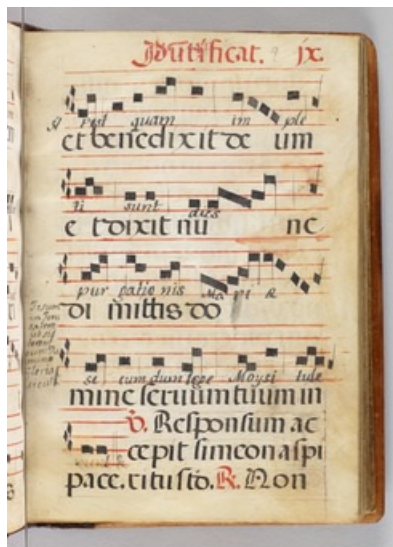 Pūtificat. ix.
A Post quam im ple
et benedixit de um
ti sunt dies
e t dixit nu nc
pur gatio nis Ma ri e
di mittis do
se cum dum lege Moysi tule
mine seruum tuum in
V. Responsum ac
cepit simeon a spi
pace. ritu sto. R. Non